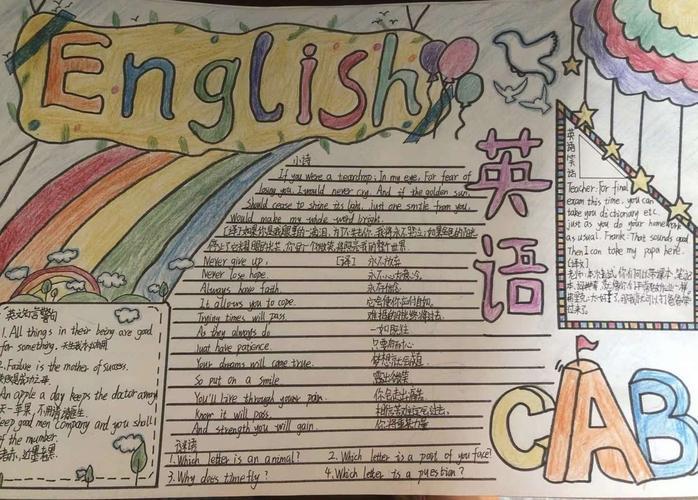 English
英语
小诗
If you were a teardrop; In my eye, For fear of
losing you, I would never cry. And if the golden sun,
Should cease to shine its light, just one smile from you,
Would make my whole world bright.
Never give up, [译] 永不放弃
Never lose hope. 永不心灰意冷。
Always have faith, 永存信念
It allows you to cope.
Trying times will pass
As they always do 一如既往
Just have patience, 只要有耐心
Your dreams will come true.
So put on a smile 露出微笑
You'll live through your pain.
Know it will pass,
And strength you will gain.
谜语
1. Which letter is an animal? 2. Which letter is a part of you face?
3. Why does time fly? 4. Which letter is a question?
英语笑话
Teacher: For final
exam this time, you can
take you dictionary etc.
just as you do your homework
as usual. Frank: That sounds good
Then I can take my papa here.
[译文]
英文名言警句
1. All things in their being are good
for something. 天生我才必有用
2. Failure is the mother of success.
失败是成功之母.
An apple a day keeps the doctor away
天一苹果, 不用请医生
keep good men company and you shall
of the number.
近墨者黑.
CAB